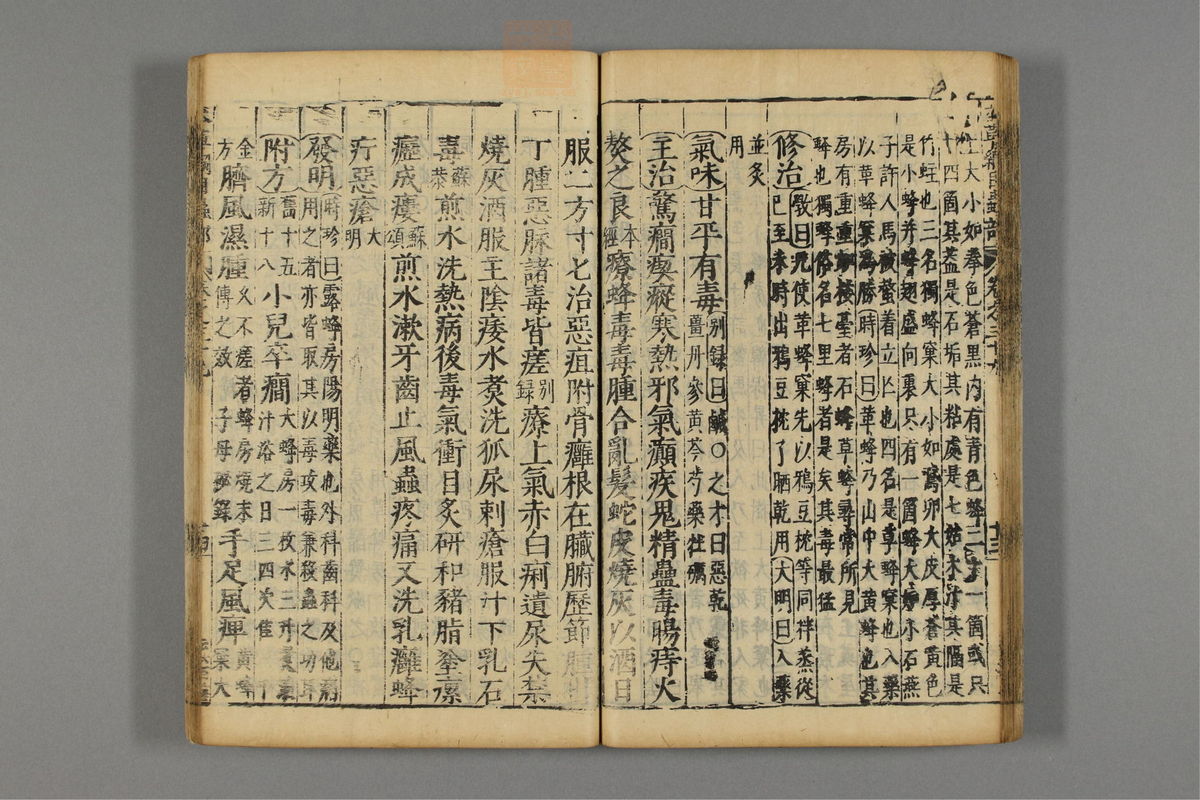 上大小如拳色蒼黑内有青色蜂二十一箇或只
十四箇其蓋是石垢其粘處是七姑木汁其隔是
竹蛀也三名獨蜂窠大小如鵞卵大皮厚蒼黄色
是小蜂并蜂翅盛向裏只有一箇蜂大如小石燕
子許人馬被螫着立亡也四名是草蜂窠也入藥
以革蜂窠爲勝時珍曰革蜂乃山中大黄蜂也其
房有重重如樓臺者石蜂草蜂尋常所見
蜂也獨蜂俗名七里蜂者是矣其毒最猛
修治斆曰凡使革蜂窠先以鴉豆枕等同拌蒸從
巳至未時出鴉豆枕了晒乾用大明曰入藥
並炙
用
氣味甘平有毒别録曰鹹○之才曰惡乾
薑丹參黄芩芍藥牡礪
主治驚癎瘈瘲寒熱邪氣癲疾鬼精蠱毒腸痔火
熬之良本經療蜂毒毒腫合亂髮蛇皮燒灰以酒日
服二方寸匕治惡疽附骨癰根在臟腑歷節腫出
丁腫惡脉諸毒皆瘥别録療上氣赤白痢遺尿失禁
燒灰酒服主陰痿水煑洗狐尿刺瘡服汁下乳石
毒蘇恭煎水洗熱病後毒氣衝目炙研和豬脂塗瘰
癧成瘻蘇頌煎水漱牙齒止風蟲疼痛又洗乳癰蜂
疔惡瘡大明
發明時珍曰露蜂房陽明藥也外科齒科及他病
用之者亦皆取其以毒攻毒兼殺蟲之功耳
附方舊十五新十八小兒卒癎大蜂房一枚水三升煑濃
汁浴之日三四次佳
金方臍風濕腫久不瘥者蜂房燒末傅之效子母秘録手足風痺黄蜂窠大